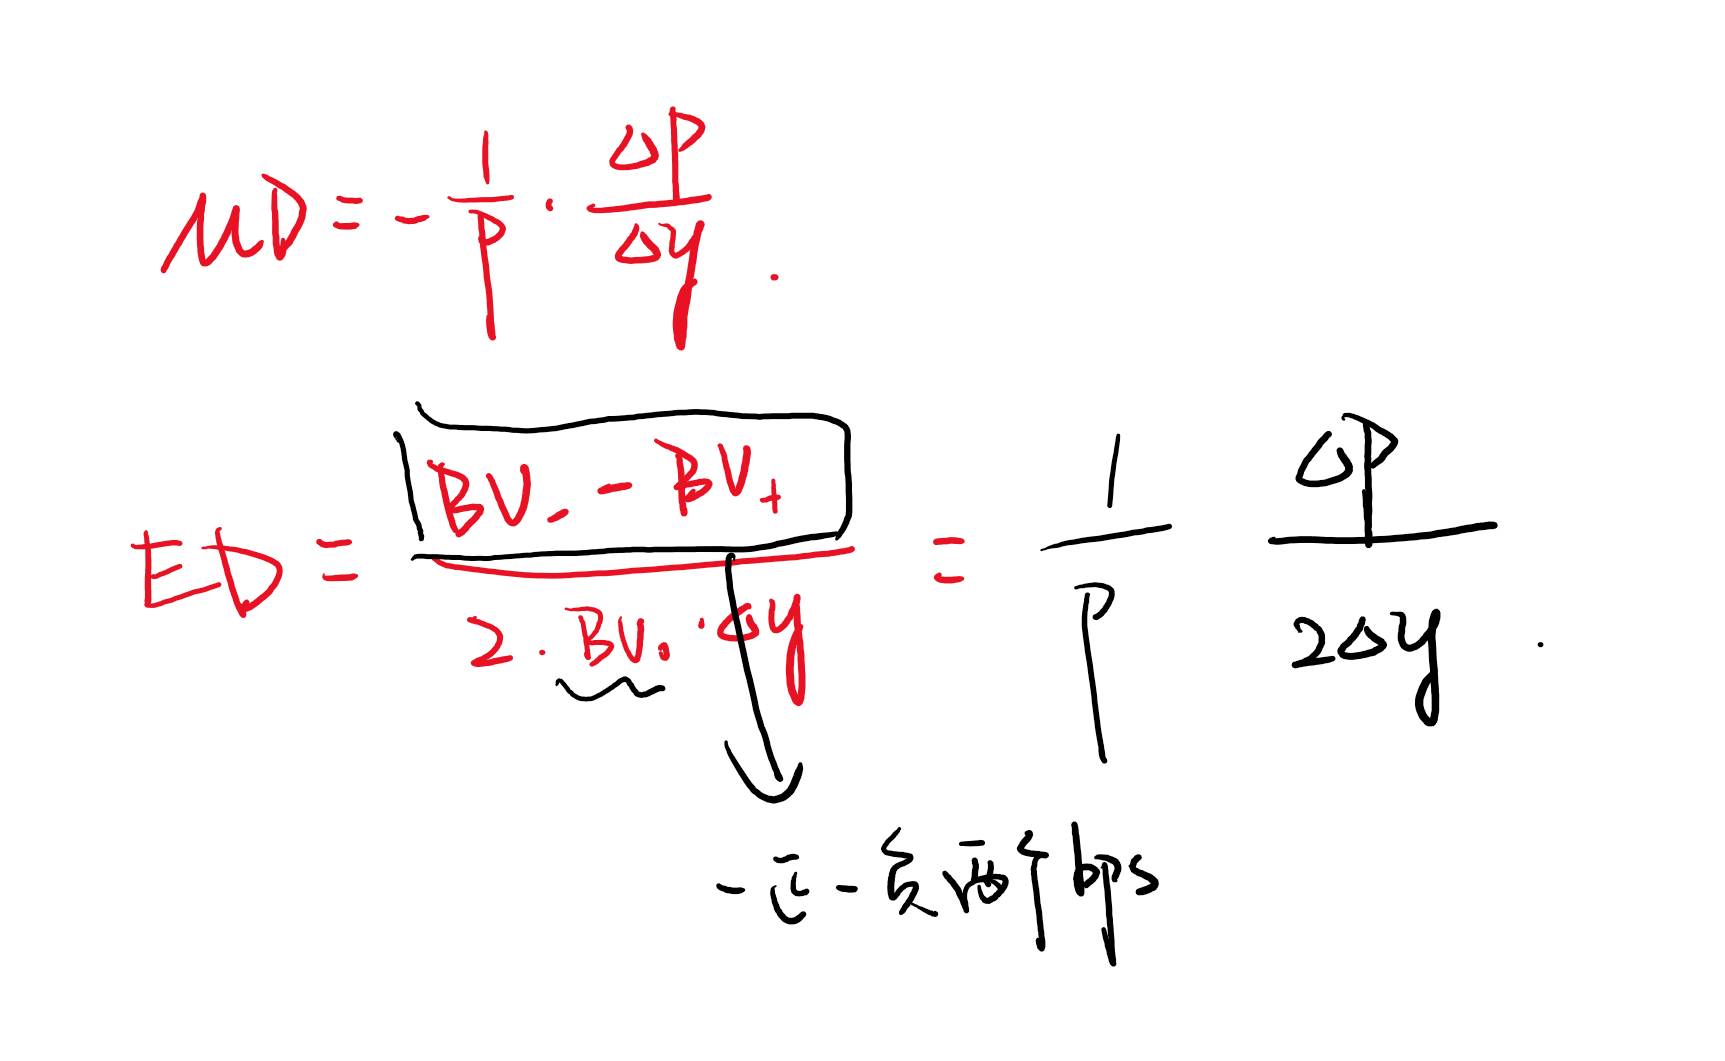 MD = - 1/P · ΔP/Δy .
ED = (BV₋ - BV₊)/(2 · BV₀ · Δy) = 1/P ΔP/2Δy .
一正一负两个bps